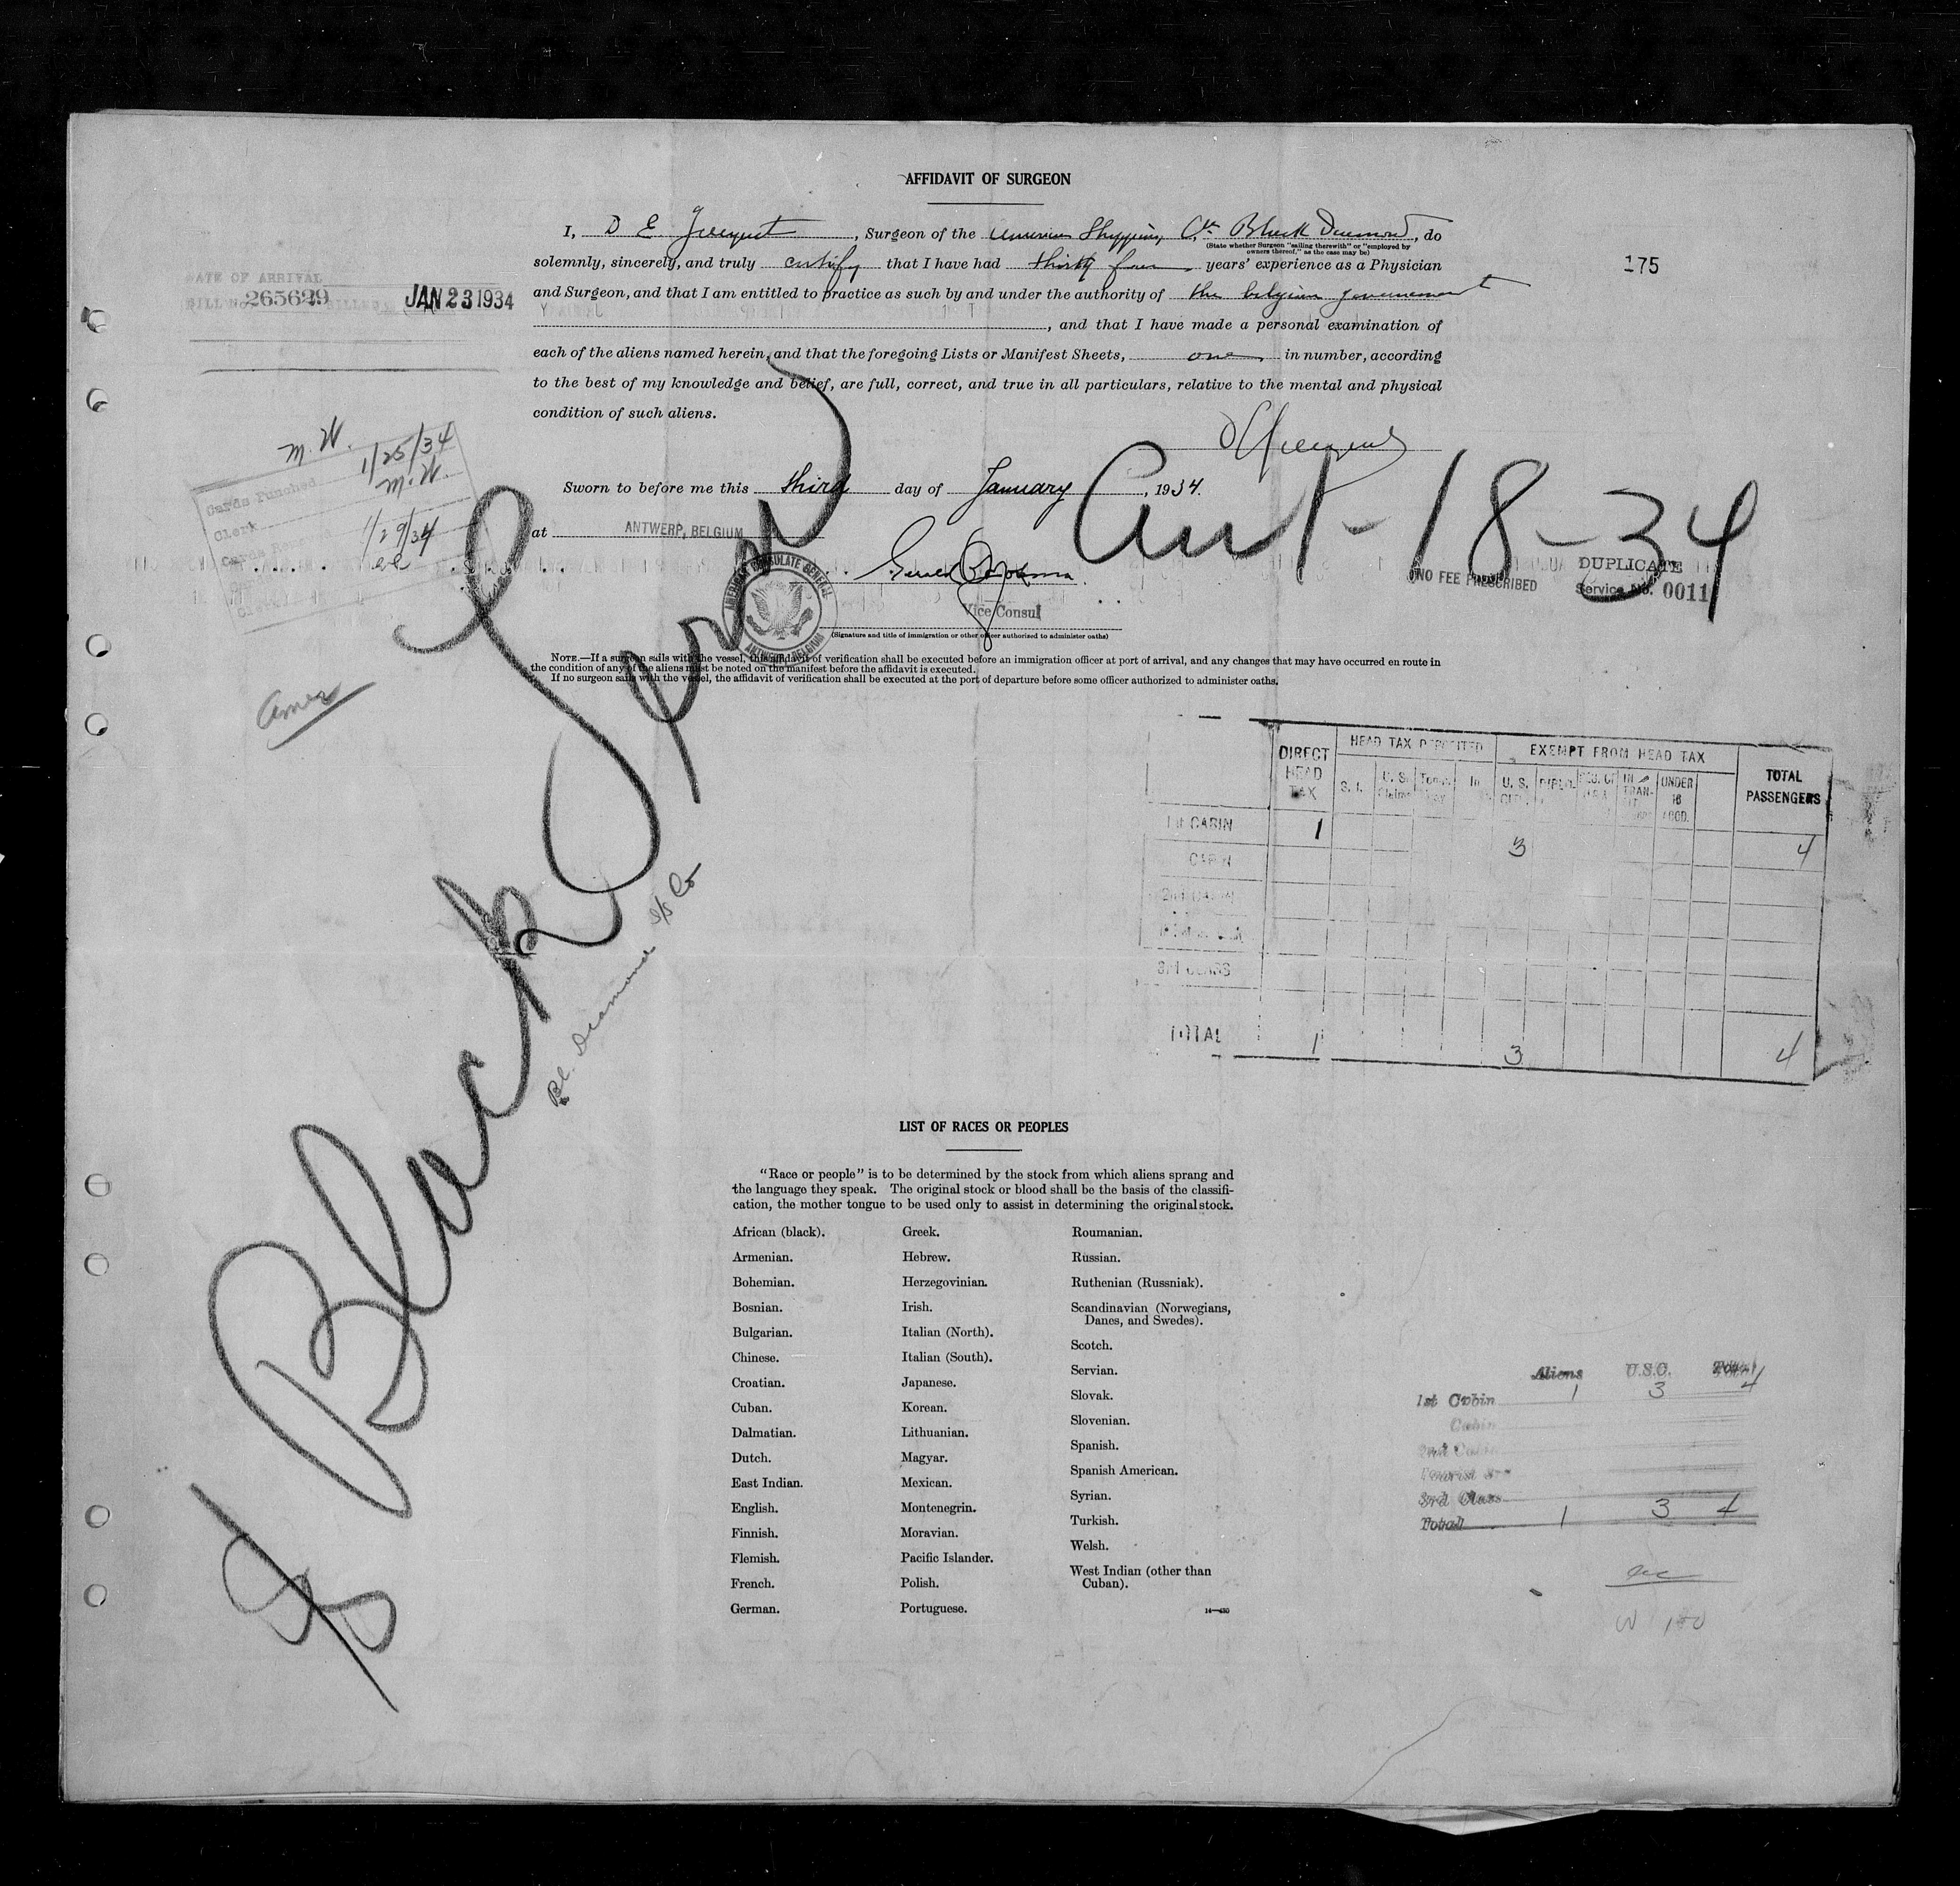 AFFIDAVIT OF SURGEON
I, D E, Surgeon of the American Shipping Black Diamond, do
(State whether Surgeon "sailing therewith" or "employed by owners thereof," as the case may be)
solemnly, sincerely, and truly certify that I have had thirty four years' experience as a Physician
175
and Surgeon, and that I am entitled to practice as such by and under the authority of the belgian government
DATE OF ARRIVAL
BILL No. 265629 JAN 23 1934
, and that I have made a personal examination of
each of the aliens named herein, and that the foregoing Lists or Manifest Sheets, one in number, according
to the best of my knowledge and belief, are full, correct, and true in all particulars, relative to the mental and physical
condition of such aliens.
M.W.
Cards Punched 1/25/34
Clerk M.W.
1/29/34
Sworn to before me this third day of January, 1934.
at ANTWERP, BELGIUM
AMERICAN CONSULATE GENERAL
ANTWERP, BELGIUM
Vice Consul
(Signature and title of immigration or other officer authorized to administer oaths)
NO FEE PRESCRIBED
DUPLICATE
Service No. 0011
18-34
NOTE.—If a surgeon sails with the vessel, this affidavit of verification shall be executed before an immigration officer at port of arrival, and any changes that may have occurred en route in
the condition of any of the aliens must be noted on the manifest before the affidavit is executed.
If no surgeon sails with the vessel, the affidavit of verification shall be executed at the port of departure before some officer authorized to administer oaths.
Amer
Black
Bl. Diamond S/S Co
DIRECT HEAD TAX
HEAD TAX DEPOSITED
EXEMPT FROM HEAD TAX
TOTAL PASSENGERS
S. I. U. S. Claims U. S. DIPLO. IN TRANSIT UNDER 16
1st CABIN 1 3 4
CABIN
3rd CLASS
TOTAL 1 3 4
LIST OF RACES OR PEOPLES
"Race or people" is to be determined by the stock from which aliens sprang and
the language they speak. The original stock or blood shall be the basis of the classifi-
cation, the mother tongue to be used only to assist in determining the original stock.
African (black).
Armenian.
Bohemian.
Bosnian.
Bulgarian.
Chinese.
Croatian.
Cuban.
Dalmatian.
Dutch.
East Indian.
English.
Finnish.
Flemish.
French.
German.
Greek.
Hebrew.
Herzegovinian.
Irish.
Italian (North).
Italian (South).
Japanese.
Korean.
Lithuanian.
Magyar.
Mexican.
Montenegrin.
Moravian.
Pacific Islander.
Polish.
Portuguese.
Roumanian.
Russian.
Ruthenian (Russniak).
Scandinavian (Norwegians,
Danes, and Swedes).
Scotch.
Servian.
Slovak.
Slovenian.
Spanish.
Spanish American.
Syrian.
Turkish.
Welsh.
West Indian (other than
Cuban).
14—430
Aliens U.S.C. Total
1st Cabin 1 3 4
Cabin
2nd Cabin
Tourist
3rd Class
Total 1 3 4